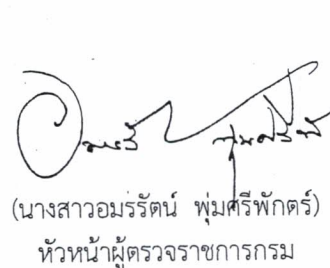 (นางสาวอมรรัตน์ พุ่มศรีพักตร์)
หัวหน้าผู้ตรวจราชการกรม